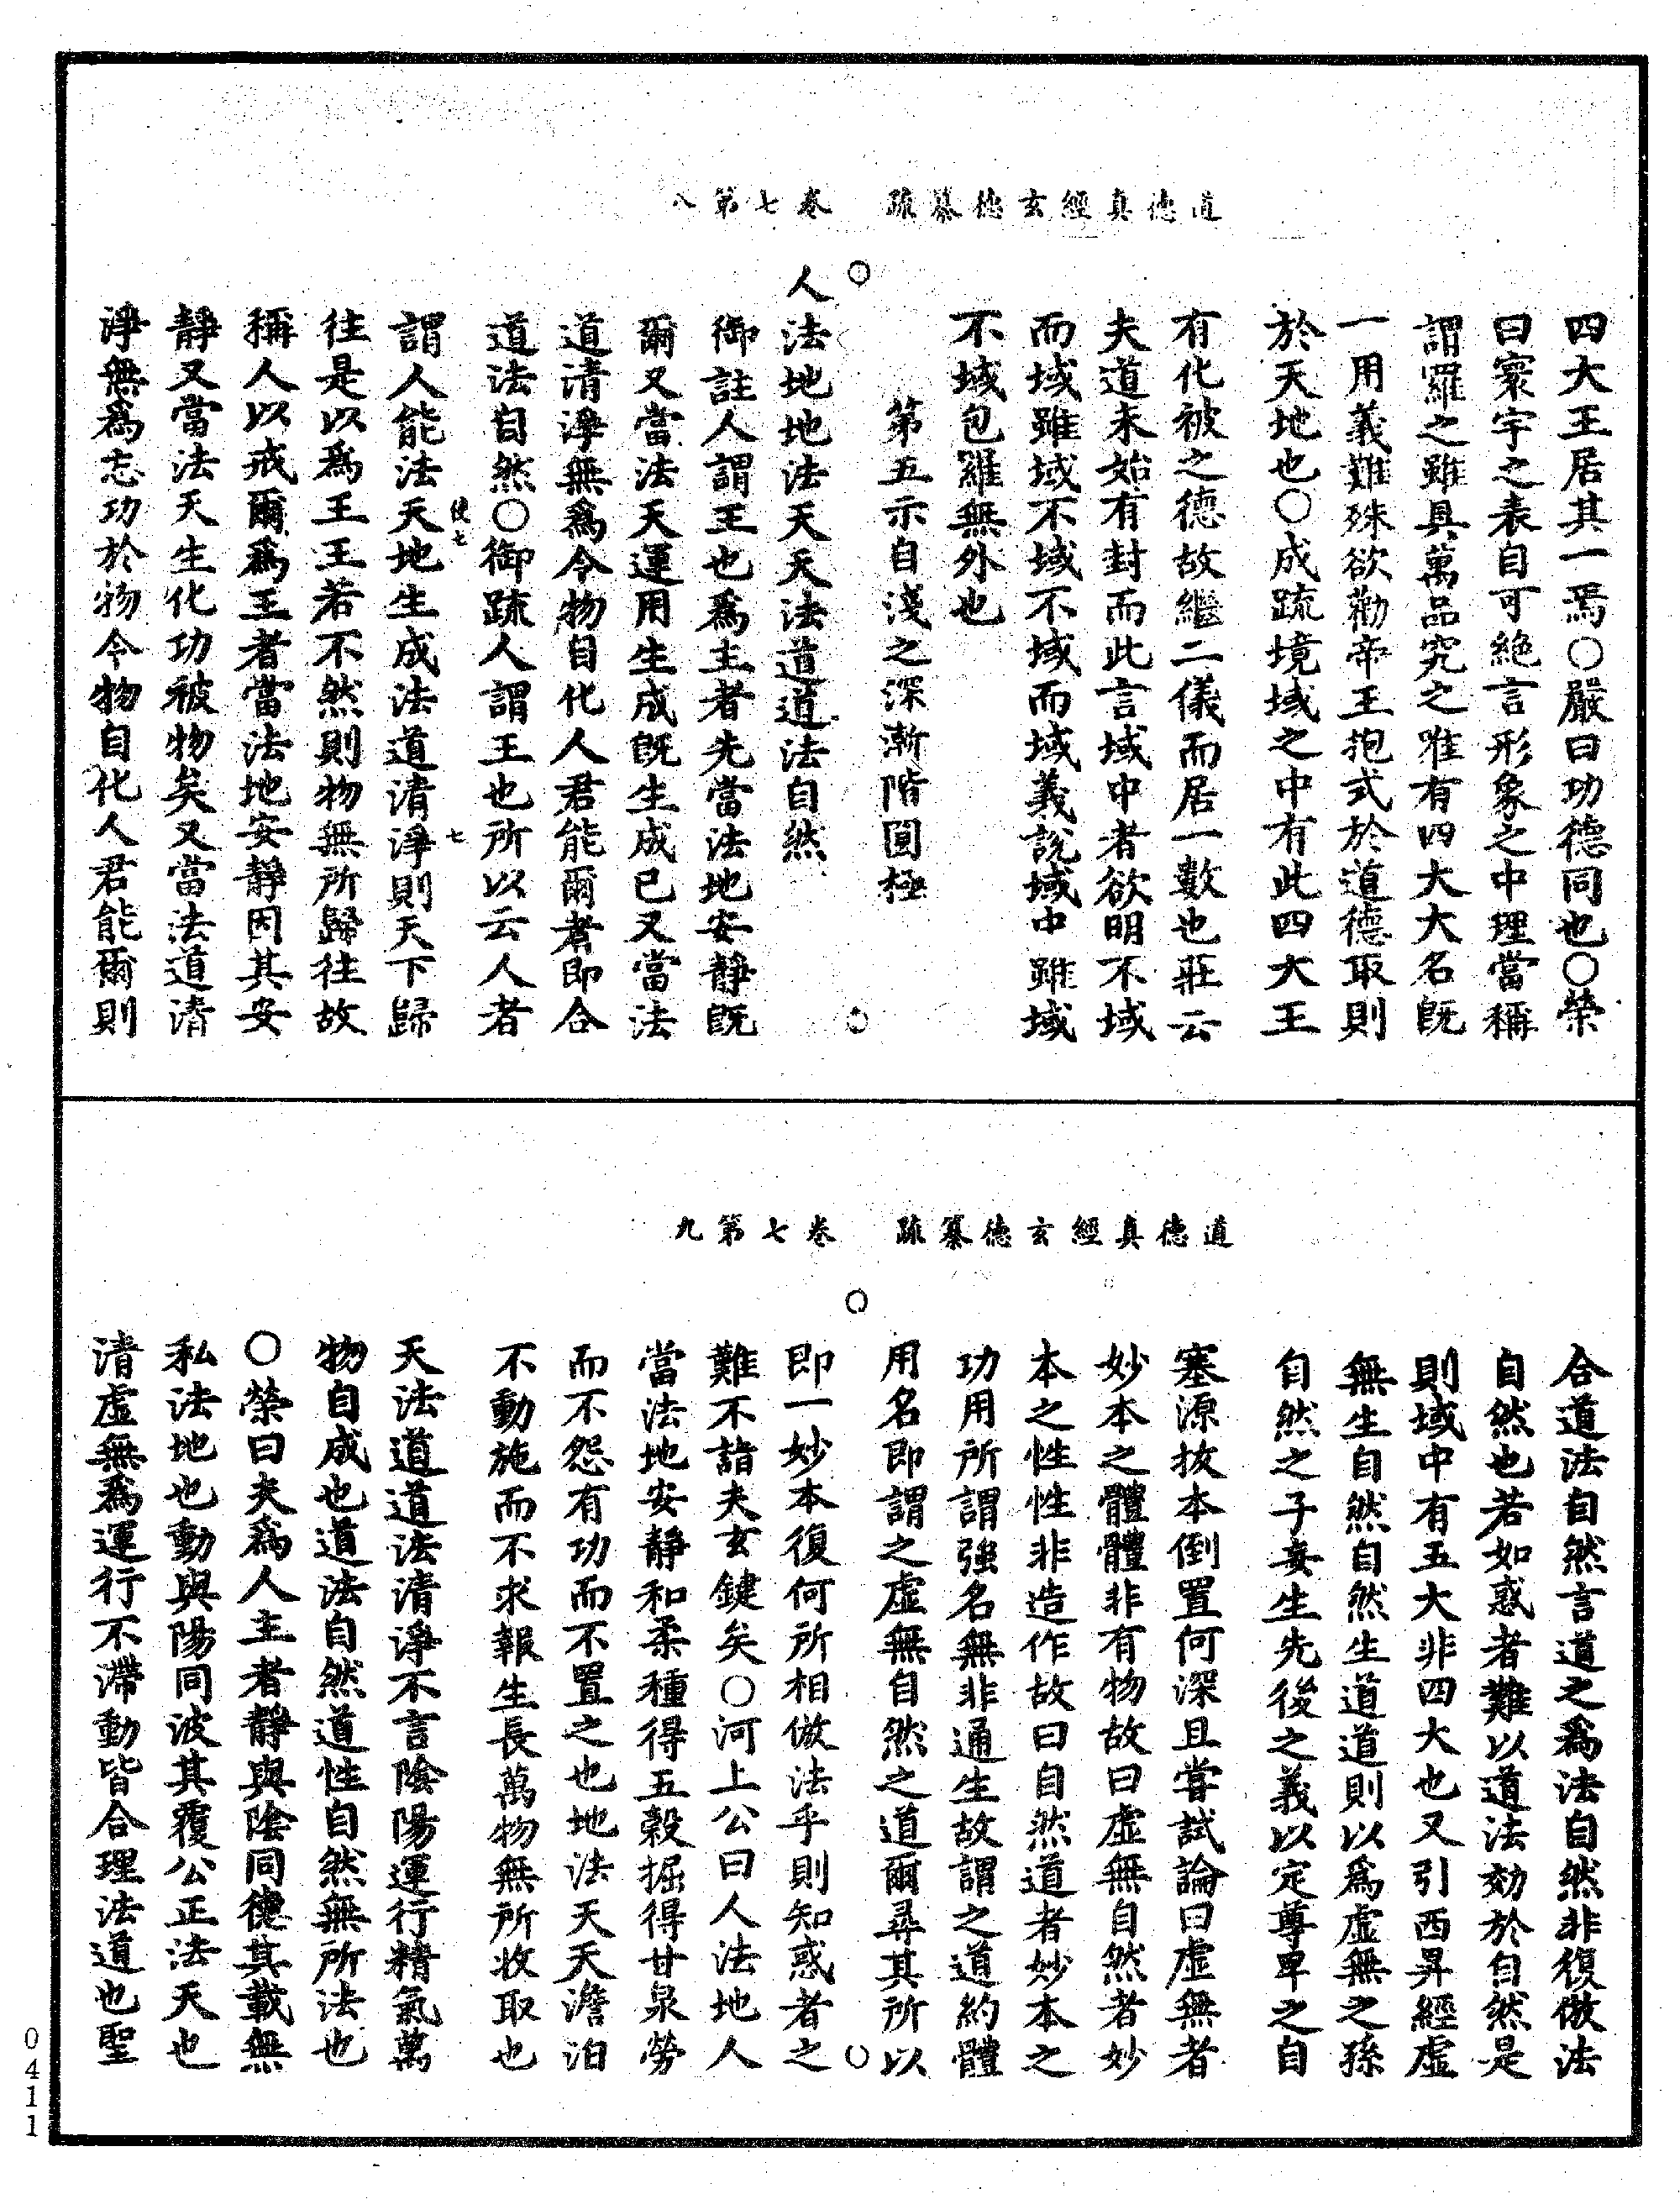 道德真經玄德纂疏　卷七第八
四大王居其一焉○嚴曰功德同也○榮
曰寰宇之表自可絶言形象之中理當稱
謂羅之雖具萬品究之唯有四大大名旣
一用義難殊欲勸帝王抱式於道德取則
於天地也○成疏境域之中有此四大王
有化被之德故繼二儀而居一數也莊云
夫道未始有封而此言域中者欲明不域
而域雖域不域不域而域義說域中雖域
不域包羅無外也
第五示自淺之深漸階圓極
人法地地法天天法道道法自然
御註人謂王也爲主者先當法地安靜旣
爾又當法天運用生成旣生成已又當法
道清淨無爲令物自化人君能爾者即合
道法自然○御疏人謂王也所以云人者
使七
七
謂人能法天地生成法道清淨則天下歸
往是以爲王王若不然則物無所歸往故
稱人以戒爾爲王者當法地安靜因其安
靜又當法天生化功被物矣又當法道清
淨無爲志功於物令物自化人君能爾則
道德真經玄德纂疏　卷七第九
合道法自然言道之爲法自然非復倣法
自然也若如惑者難以道法効於自然是
則域中有五大非四大也又引西昇經虛
無生自然自然生道道則以爲虛無之孫
自然之子妄生先後之義以定尊卑之自
塞源拔本倒置何深且嘗試論曰虛無者
妙本之體體非有物故曰虛無自然者妙
本之性性非造作故曰自然道者妙本之
功用所謂強名無非通生故謂之道約體
用名即謂之虛無自然之道爾尋其所以
即一妙本復何所相倣法乎則知惑者之
難不詣夫玄鍵矣○河上公曰人法地人
當法地安靜和柔種得五穀掘得甘泉勞
而不怨有功而不置之也地法天天澹泊
不動施而不求報生長萬物無所收取也
天法道道法清淨不言陰陽運行精氣萬
物自成也道法自然道性自然無所法也
○榮曰夫爲人主者靜與陰同德其載無
私法地也動與陽同波其覆公正法天也
清虛無爲運行不滯動皆合理法道也聖
0411